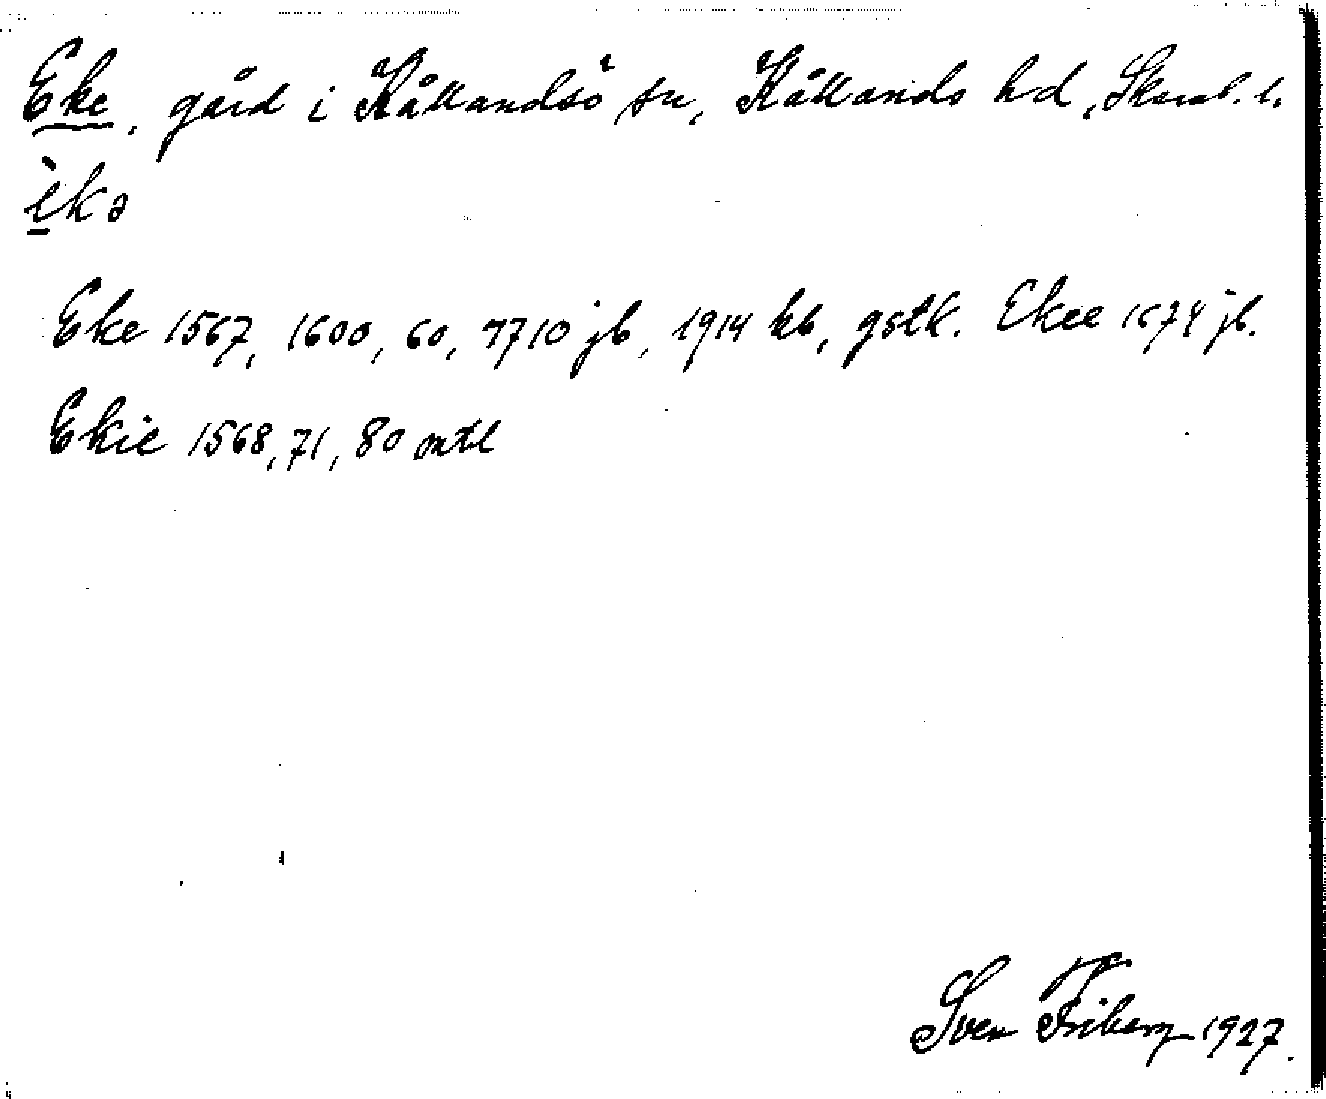 Eke, gård i Kållandsö sn, Kållands hd, Skarab. l.
èkə
Eke 1567, 1600, 60, 1710 jb, 1914 kb, gstk. Ekee 1674 jb.
Ekie 1568, 71, 80 mtl
Sven Friberg 1927.